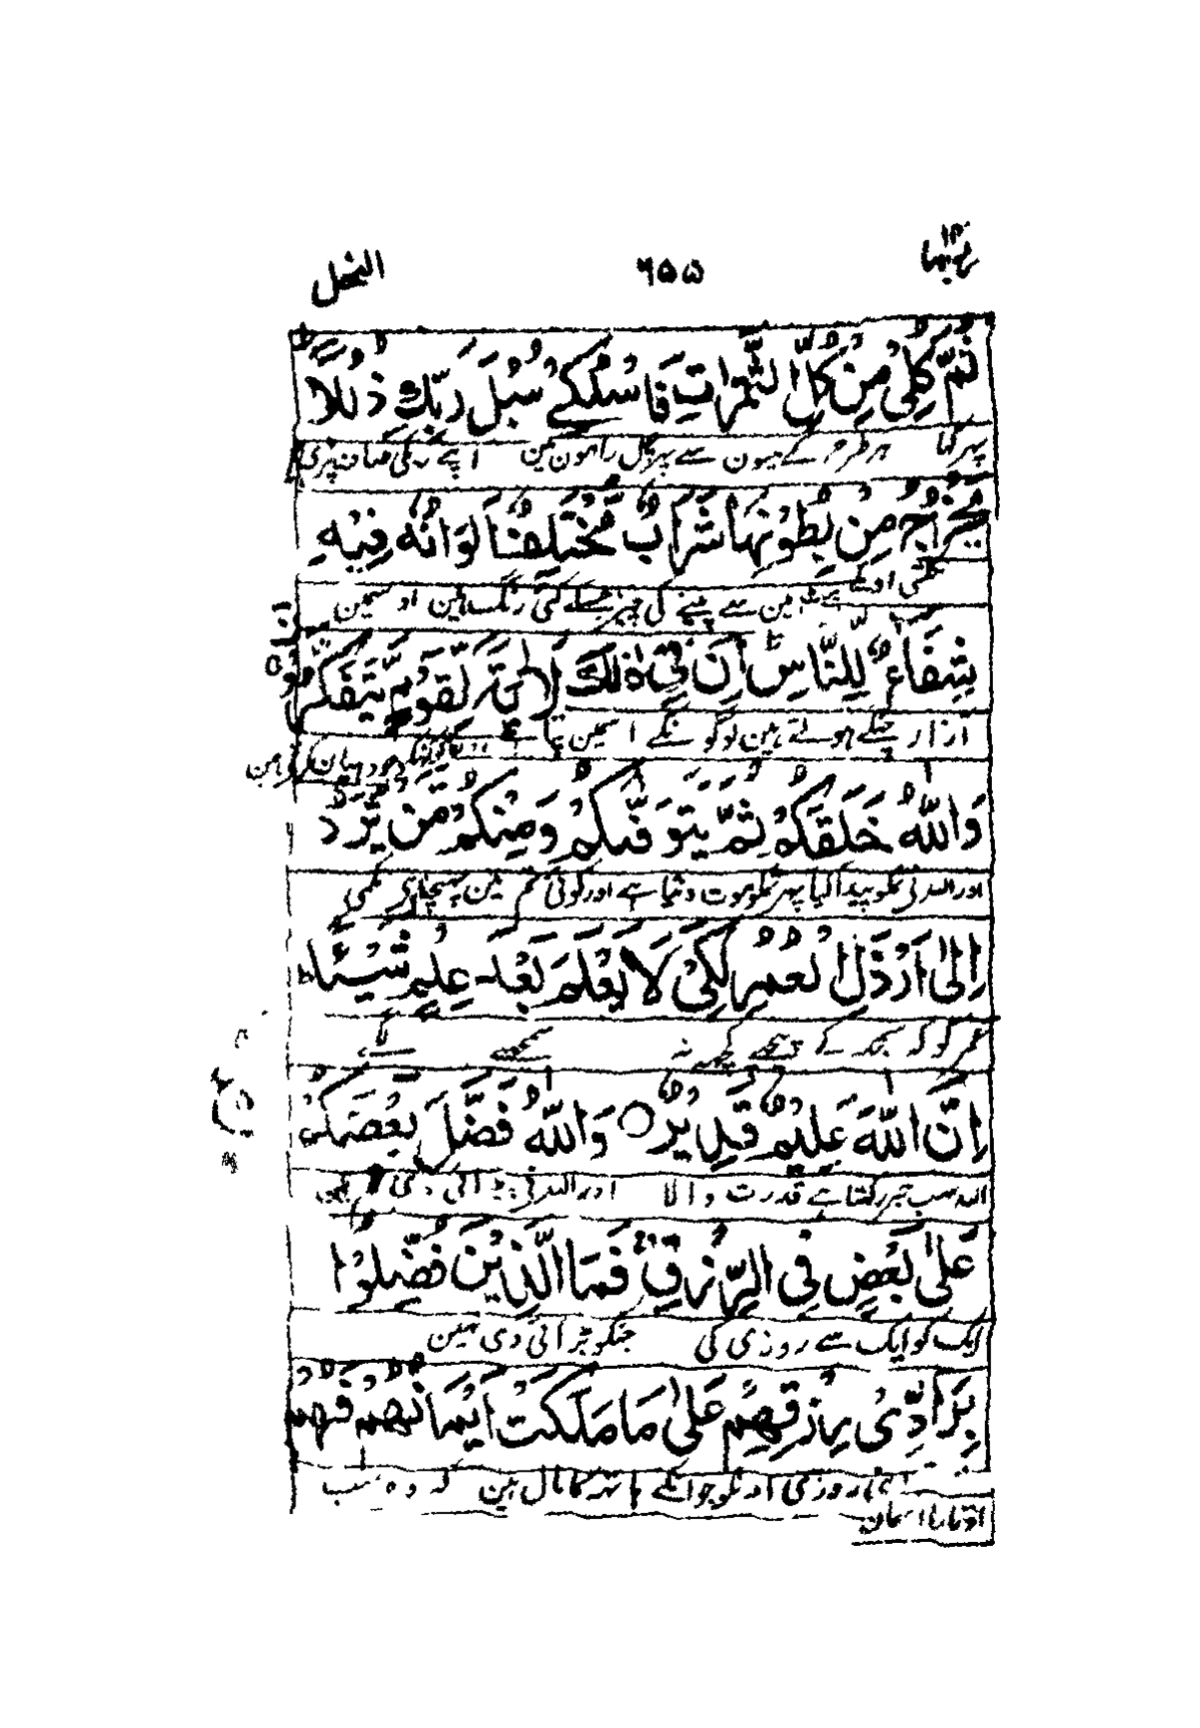 ربما ١٤ ٦٥٥ النحل
ثُمَّ كُلِىْ مِنْ كُلِّ الثَّمَرَاتِ فَاسْلُكِىْ سُبُلَ رَبِّكِ ذُلُلًا
پہر کہا ہر طرح کے میون سے پہر چل راہون مین اپنے رب کی صاف پڑی
يَخْرُجُ مِنْ بُطُوْنِهَا شَرَابٌ مُّخْتَلِفٌ اَلْوَانُهٗ فِيْهِ
نکلتی اونکے پیٹ مین سے پینے کی چیز جسکے کئی رنگ ہین اوسمین
شِفَآءٌ لِّلنَّاسِ اِنَّ فِىْ ذٰلِكَ لَاٰيَةً لِّقَوْمٍ يَّتَفَكَّرُوْنَ
آزار چنگے ہوتے ہین لوگونکے اسمین پتا ہے اون لوگونکو جو دہیان کرتے ہین
وَاللّٰهُ خَلَقَكُمْ ثُمَّ يَتَوَفّٰىكُمْ وَمِنْكُمْ مَّنْ يُّرَدُّ
اور اللہ نی تمکو پیدا کیا پہر تمکو موت دیتا ہے اور کوئی تم مین پہنچتا ہی نکمی
اِلٰى اَرْذَلِ الْعُمُرِ لِكَىْ لَا يَعْلَمَ بَعْدَ عِلْمٍ شَيْـًٔا
عمر کو کہ سمجہہ کے پیچہے کچہہ نہ سمجہنے لگے
اِنَّ اللّٰهَ عَلِيْمٌ قَدِيْرٌ وَاللّٰهُ فَضَّلَ بَعْضَكُمْ
اللہ سب خبر رکہتا ہے قدرت والا اور اللہ نی بڑائی دی تم مین
عَلٰى بَعْضٍ فِى الرِّزْقِ فَمَا الَّذِيْنَ فُضِّلُوْا
ایک کو ایک سے روزی کی جنکو بڑائی دی نہین
بِرَآدِّىْ رِزْقِهِمْ عَلٰى مَا مَلَكَتْ اَيْمَانُهُمْ فَهُمْ
اپنی روزی اونکو جو اونکے ہاتہہ کا مال ہین کہ وہ سب
اوتارا آسمان